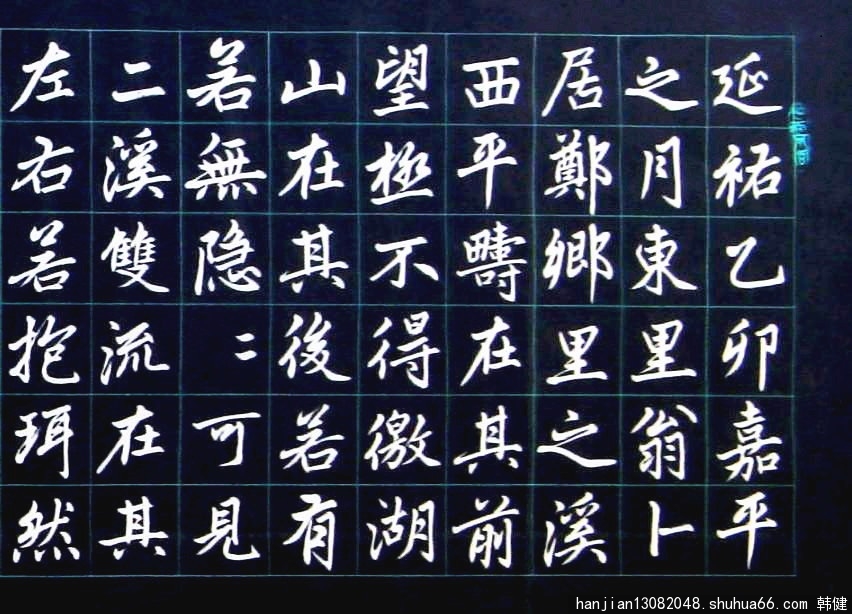 延祐乙卯嘉平
之月東里翁卜
居鄭鄉里之溪
西平疇在其前
望極不得徼湖
山在其後若有
若無隐〻可見
二溪雙流在其
左右若抱珥然
hanjian13082048.shuhua66.com 韩健